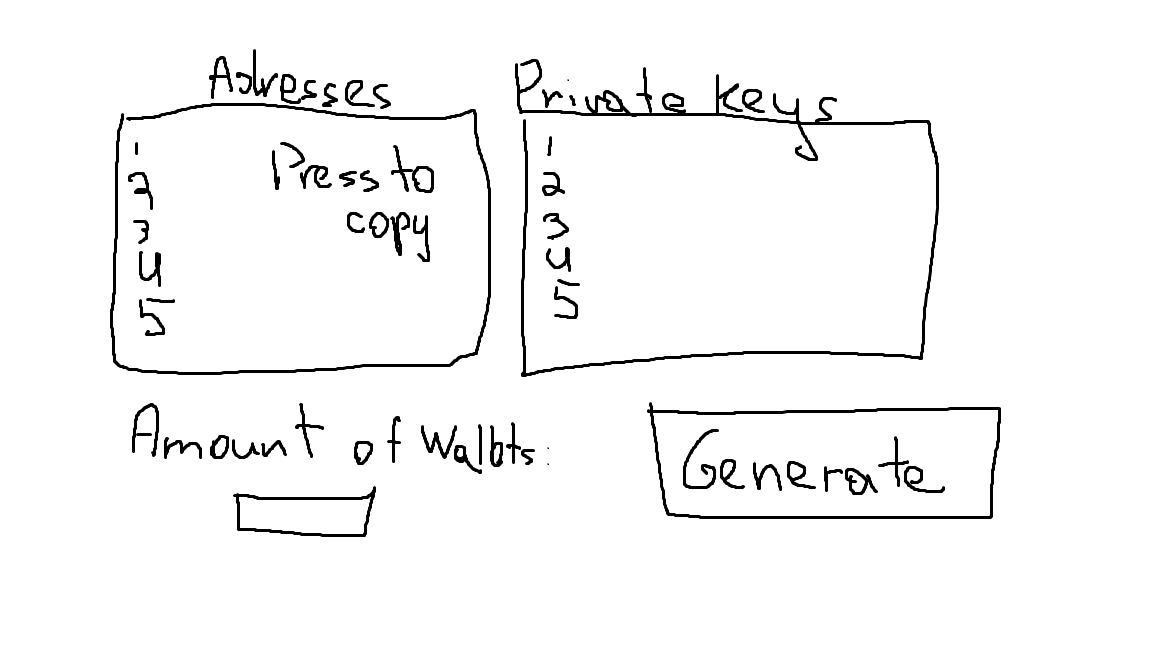 Adresses
Press to
copy
1
2
3
4
5
Private keys
1
2
3
4
5
Amount of Wallets:
Generate